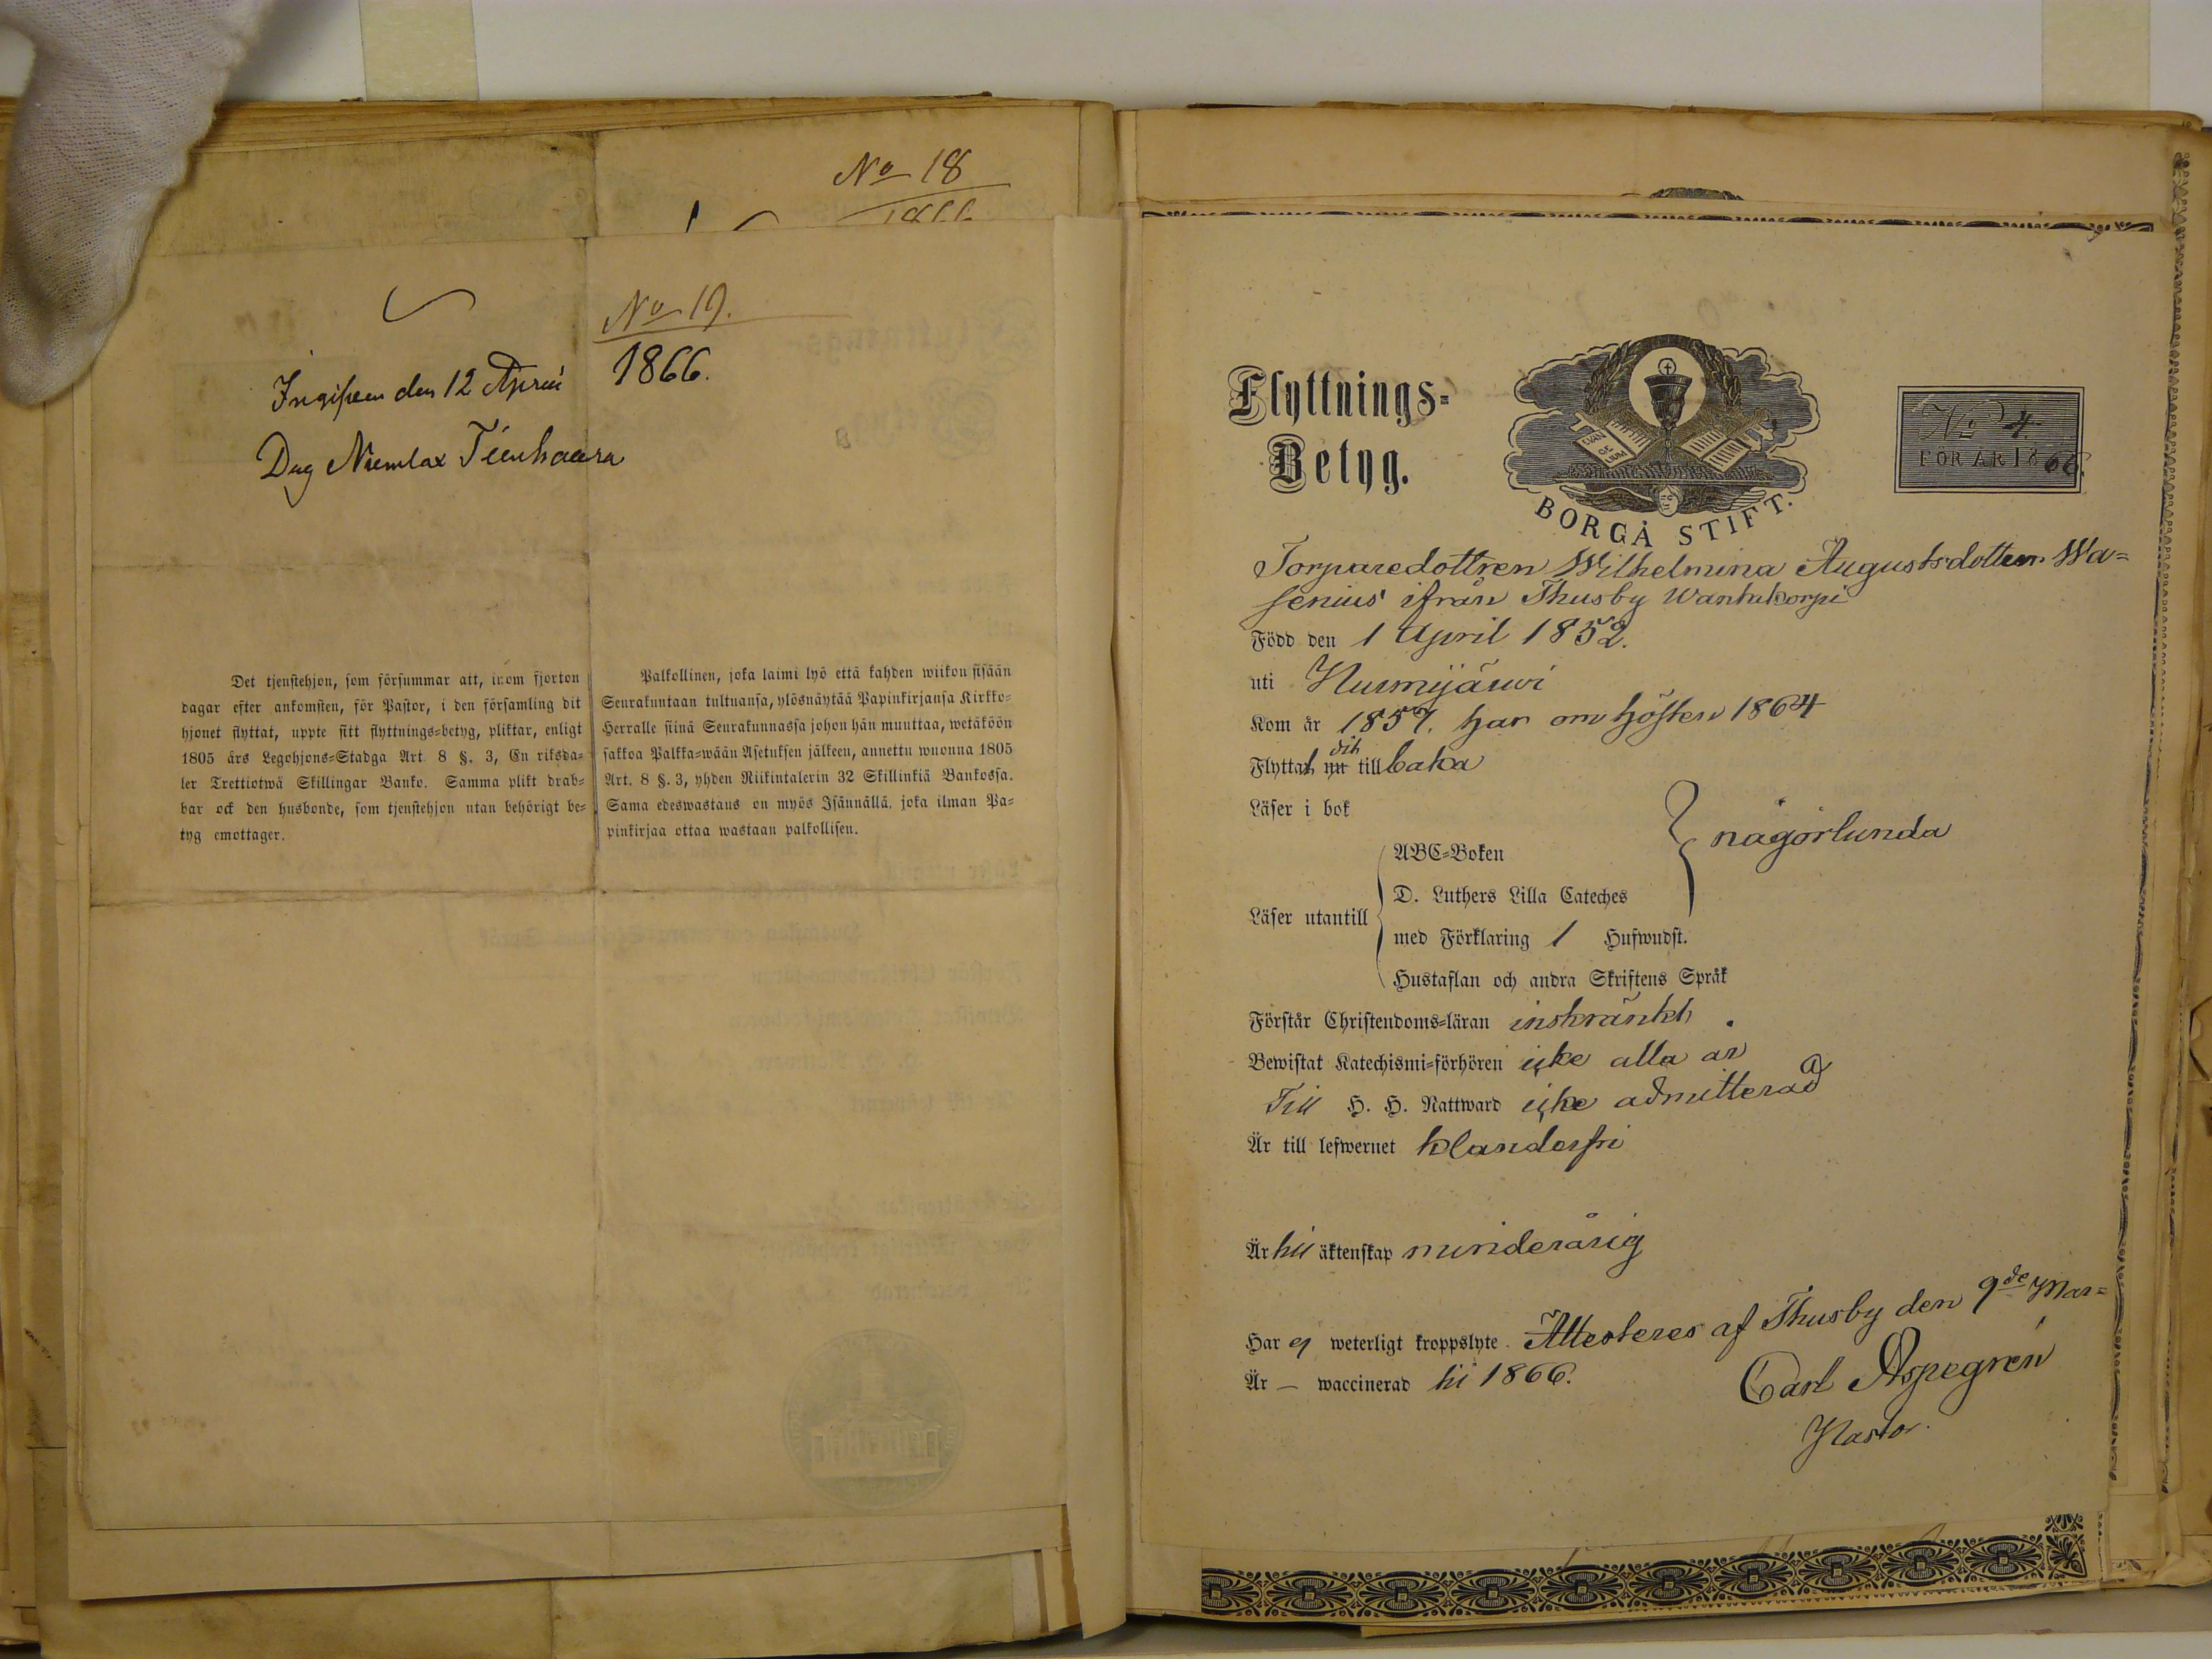 No 18
1866
No 19.
1866.
Ingifven den 12 April
Dag Niemlax Tienhaara
Det tjenstehjon, som försummar att, inom fjorton
dagar efter ankomsten, för Pastor, i den församling dit
hjonet flyttat, uppte sitt flyttnings=betyg, pliktar, enligt
1805 års Legohjons=Stadga Art. 8 §. 3, En riksda=
ler Trettiotwå Skillingar Banko. Samma plikt drab=
bar ock den husbonde, som tjenstehjon utan behörigt be=
tyg emottager.
Palkollinen, joka laimi lyö että kahden wiikon sisään
Seurakuntaan tultuansa, ylösnäytää Papinkirjansa Kirkko=
Herralle siinä Seurakunnassa johon hän muuttaa, wetäköön
sakkoa Palkka=wään Asetuksen jälkeen, annettu wuonna 1805
Art. 8 §. 3, yhden Riikintalerin 32 Skillinkiä Bankossa.
Sama edeswastaus on myös Isännällä, joka ilman Pa=
pinkirjaa ottaa wastaan palkollisen.
Flyttnings=
Betyg.
EVAN
GE
LIUM
BORGÅ STIFT.
No 4.
FÖR ÅR 1866.
Torparedottren Wilhelmina Augustsdotter Wa=
senius ifrån Thusby Wantakorpi
Född den 1 April 1852.
uti Nurmijärwi
Kom år 1857. har om hösten 1864
Flyttat dit tillbaka
Läser i bok
någorlunda
Läser utantill
ABC=Boken
D. Luthers Lilla Cateches
med Förklaring 1 Hufwudst.
Hustaflan och andra Skriftens Språk
Förstår Christendoms=läran inskränkt.
Bewistat Katechismi=förhören icke alla år
Till H. H. Nattward icke admitterad
Är till lefwernet klanderfri
Är till äktenskap minderårig
Har ej weterligt kroppslyte. Attesteres af Thusby den 9de Mar=
Är — waccinerad tii 1866.
Carl Aspegrén
Pastor.